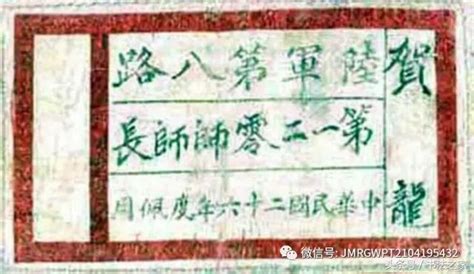 賀龍
陸軍第八路
第一二零師師長
中華民國二十六年度佩用
微信号: JMRGWPT2104195432